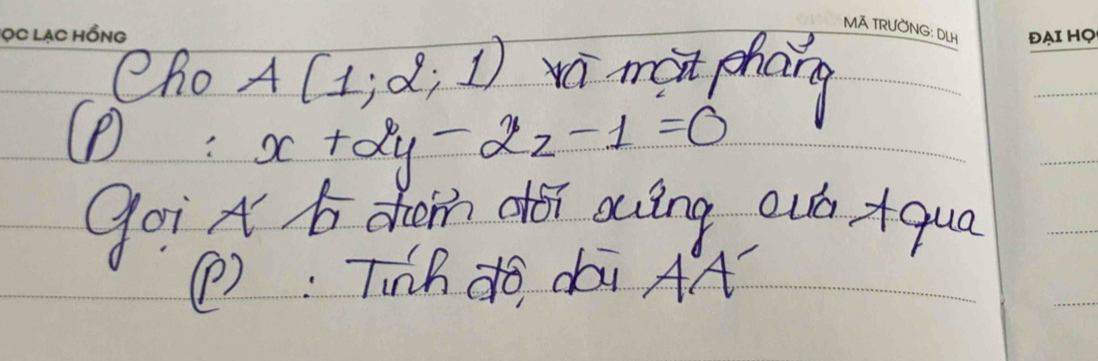 ỌC LẠC HỒNG
MÃ TRƯỜNG: DLH
ĐẠI HỌ
Cho A (1; 2; 1) và mặt phẳng
(P) : x + 2y - 2z - 1 = 0
Gọi A' là điểm đối xứng của A qua
(P) : Tính độ dài AA'